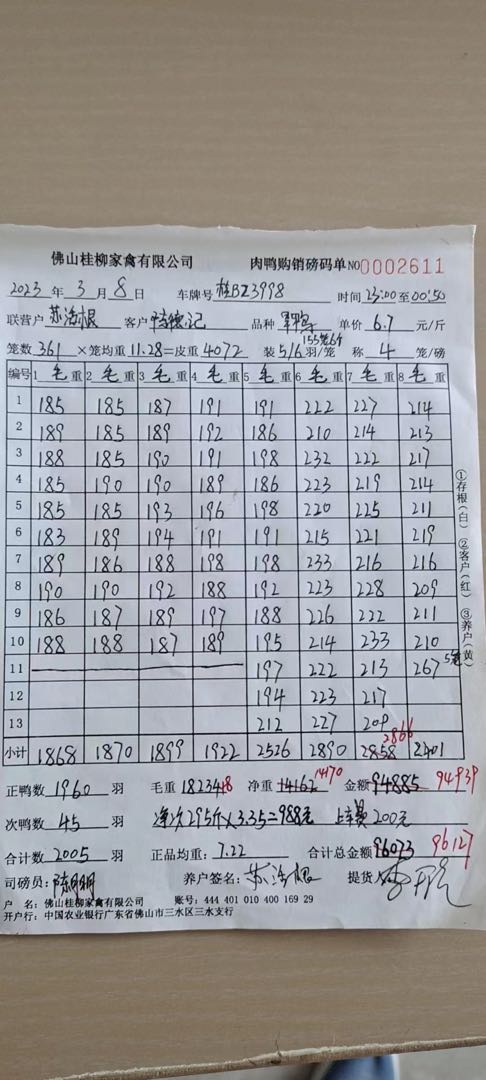 佛山桂柳家禽有限公司 肉鸭购销磅码单 NO0002611
2023 年 3 月 8 日 车牌号 桂BZ3998 时间 23:00 至 00:50
联营户 苏浩根 客户 记 品种 单价 6.7 元/斤
153笼6羽
笼数 361 ×笼均重 11.28=皮重 4072 装 5/6 羽/笼 称 4 笼/磅
编号 1 毛 重 2 毛 重 3 毛 重 4 毛 重 5 毛 重 6 毛 重 7 毛 重 8 毛 重
1 185 185 187 191 191 222 227 214
2 189 185 189 192 186 210 214 213
3 188 185 190 191 198 232 222 217
4 185 190 190 189 186 223 219 214
5 185 185 193 196 198 220 225 211
6 183 189 194 191 191 215 221 219
7 189 186 188 198 198 233 216 216
8 190 190 192 188 192 223 228 209
9 186 187 189 197 188 226 222 211
10 188 188 187 189 195 214 233 210
11 197 222 213 267 5笼
12 194 223 217
13 212 227 209
2866
小计 1868 1870 1899 1922 2526 2890 2858 2401
①存根(白) ②客户(红) ③养户(黄)
正鸭数 1960 羽 毛重 18234+8 净重 14162 14170 金额 94885 94939
次鸭数 45 羽 净次295斤×3.35=988元 上车费200元
合计数 2005 羽 正品均重: 7.22 合计总金额 96073 96127
司磅员: 养户签名: 苏浩根 提货人
户 名: 佛山桂柳家禽有限公司 账号: 444 401 010 400 169 29
开户行: 中国农业银行广东省佛山市三水区三水支行